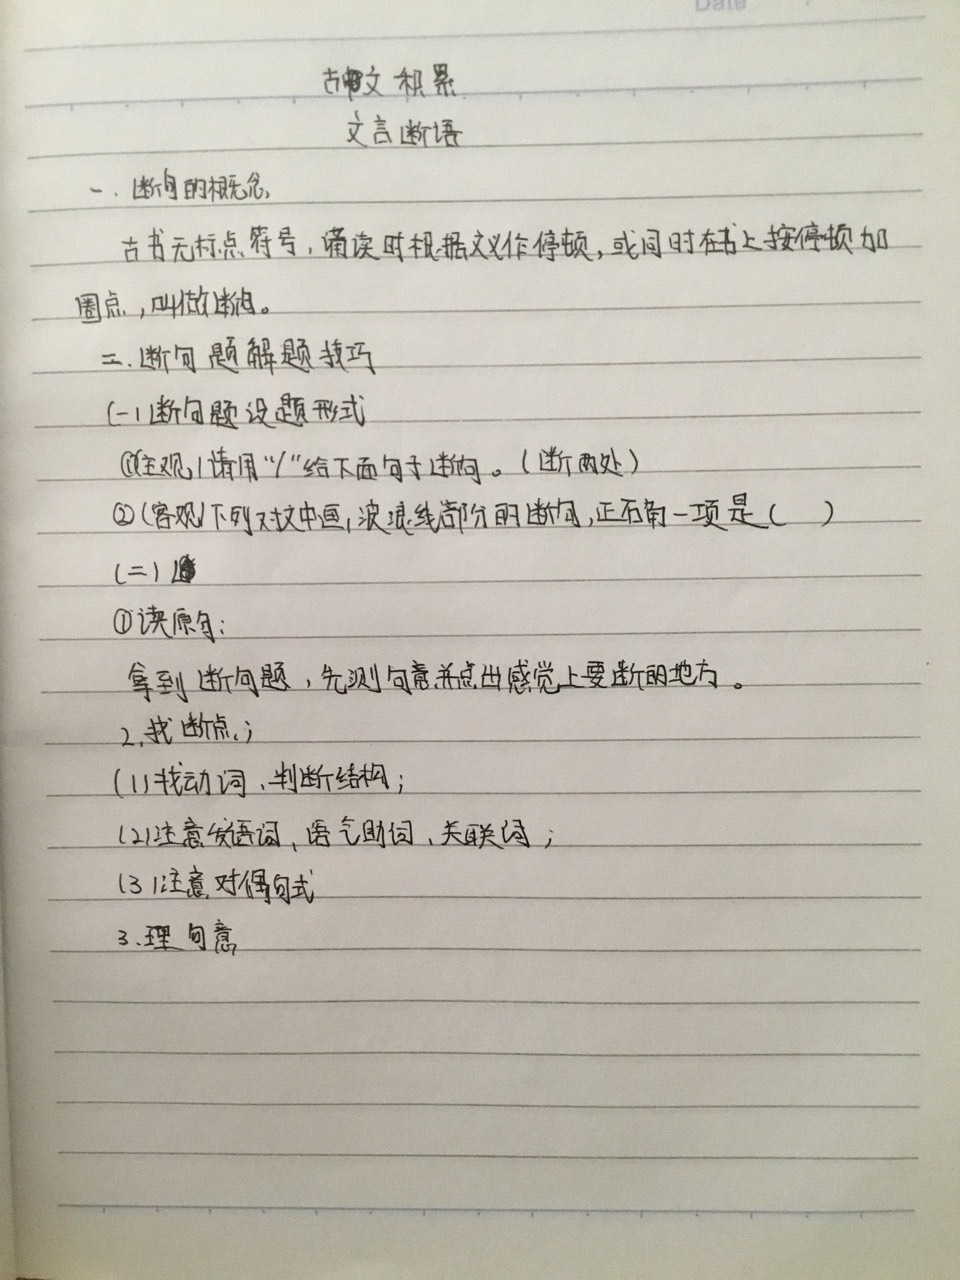 Date
古文积累
文言断语
一.断句的概念
古书无标点符号，诵读时根据文义作停顿，或同时在书上按停顿加
圈点，叫做断句。
二.断句题解题技巧
(一)断句题设题形式
①(主观)请用“/”给下面句子断句。(断两处)
②(客观)下列对文中画,波浪线部分的断句,正确一项是(  )
(二)
①读原句:
拿到断句题，先测句意并点出感觉上要断的地方。
2.找断点;
(1)找动词、判断结构;
(2)注意发语词、语气助词、关联词;
(3)注意对偶句式
3.理句意